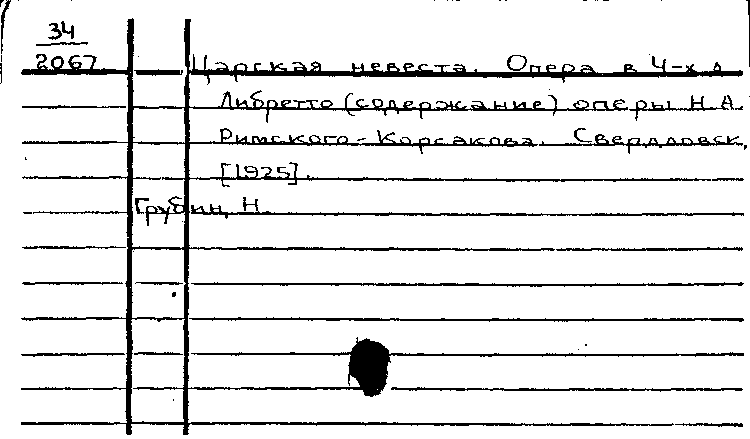 34
2067 Царская невеста. Опера в 4-х д.
Либретто (содержание) оперы Н.А.
Римского-Корсакова. Свердловск,
[1925].
Грубин, Н.